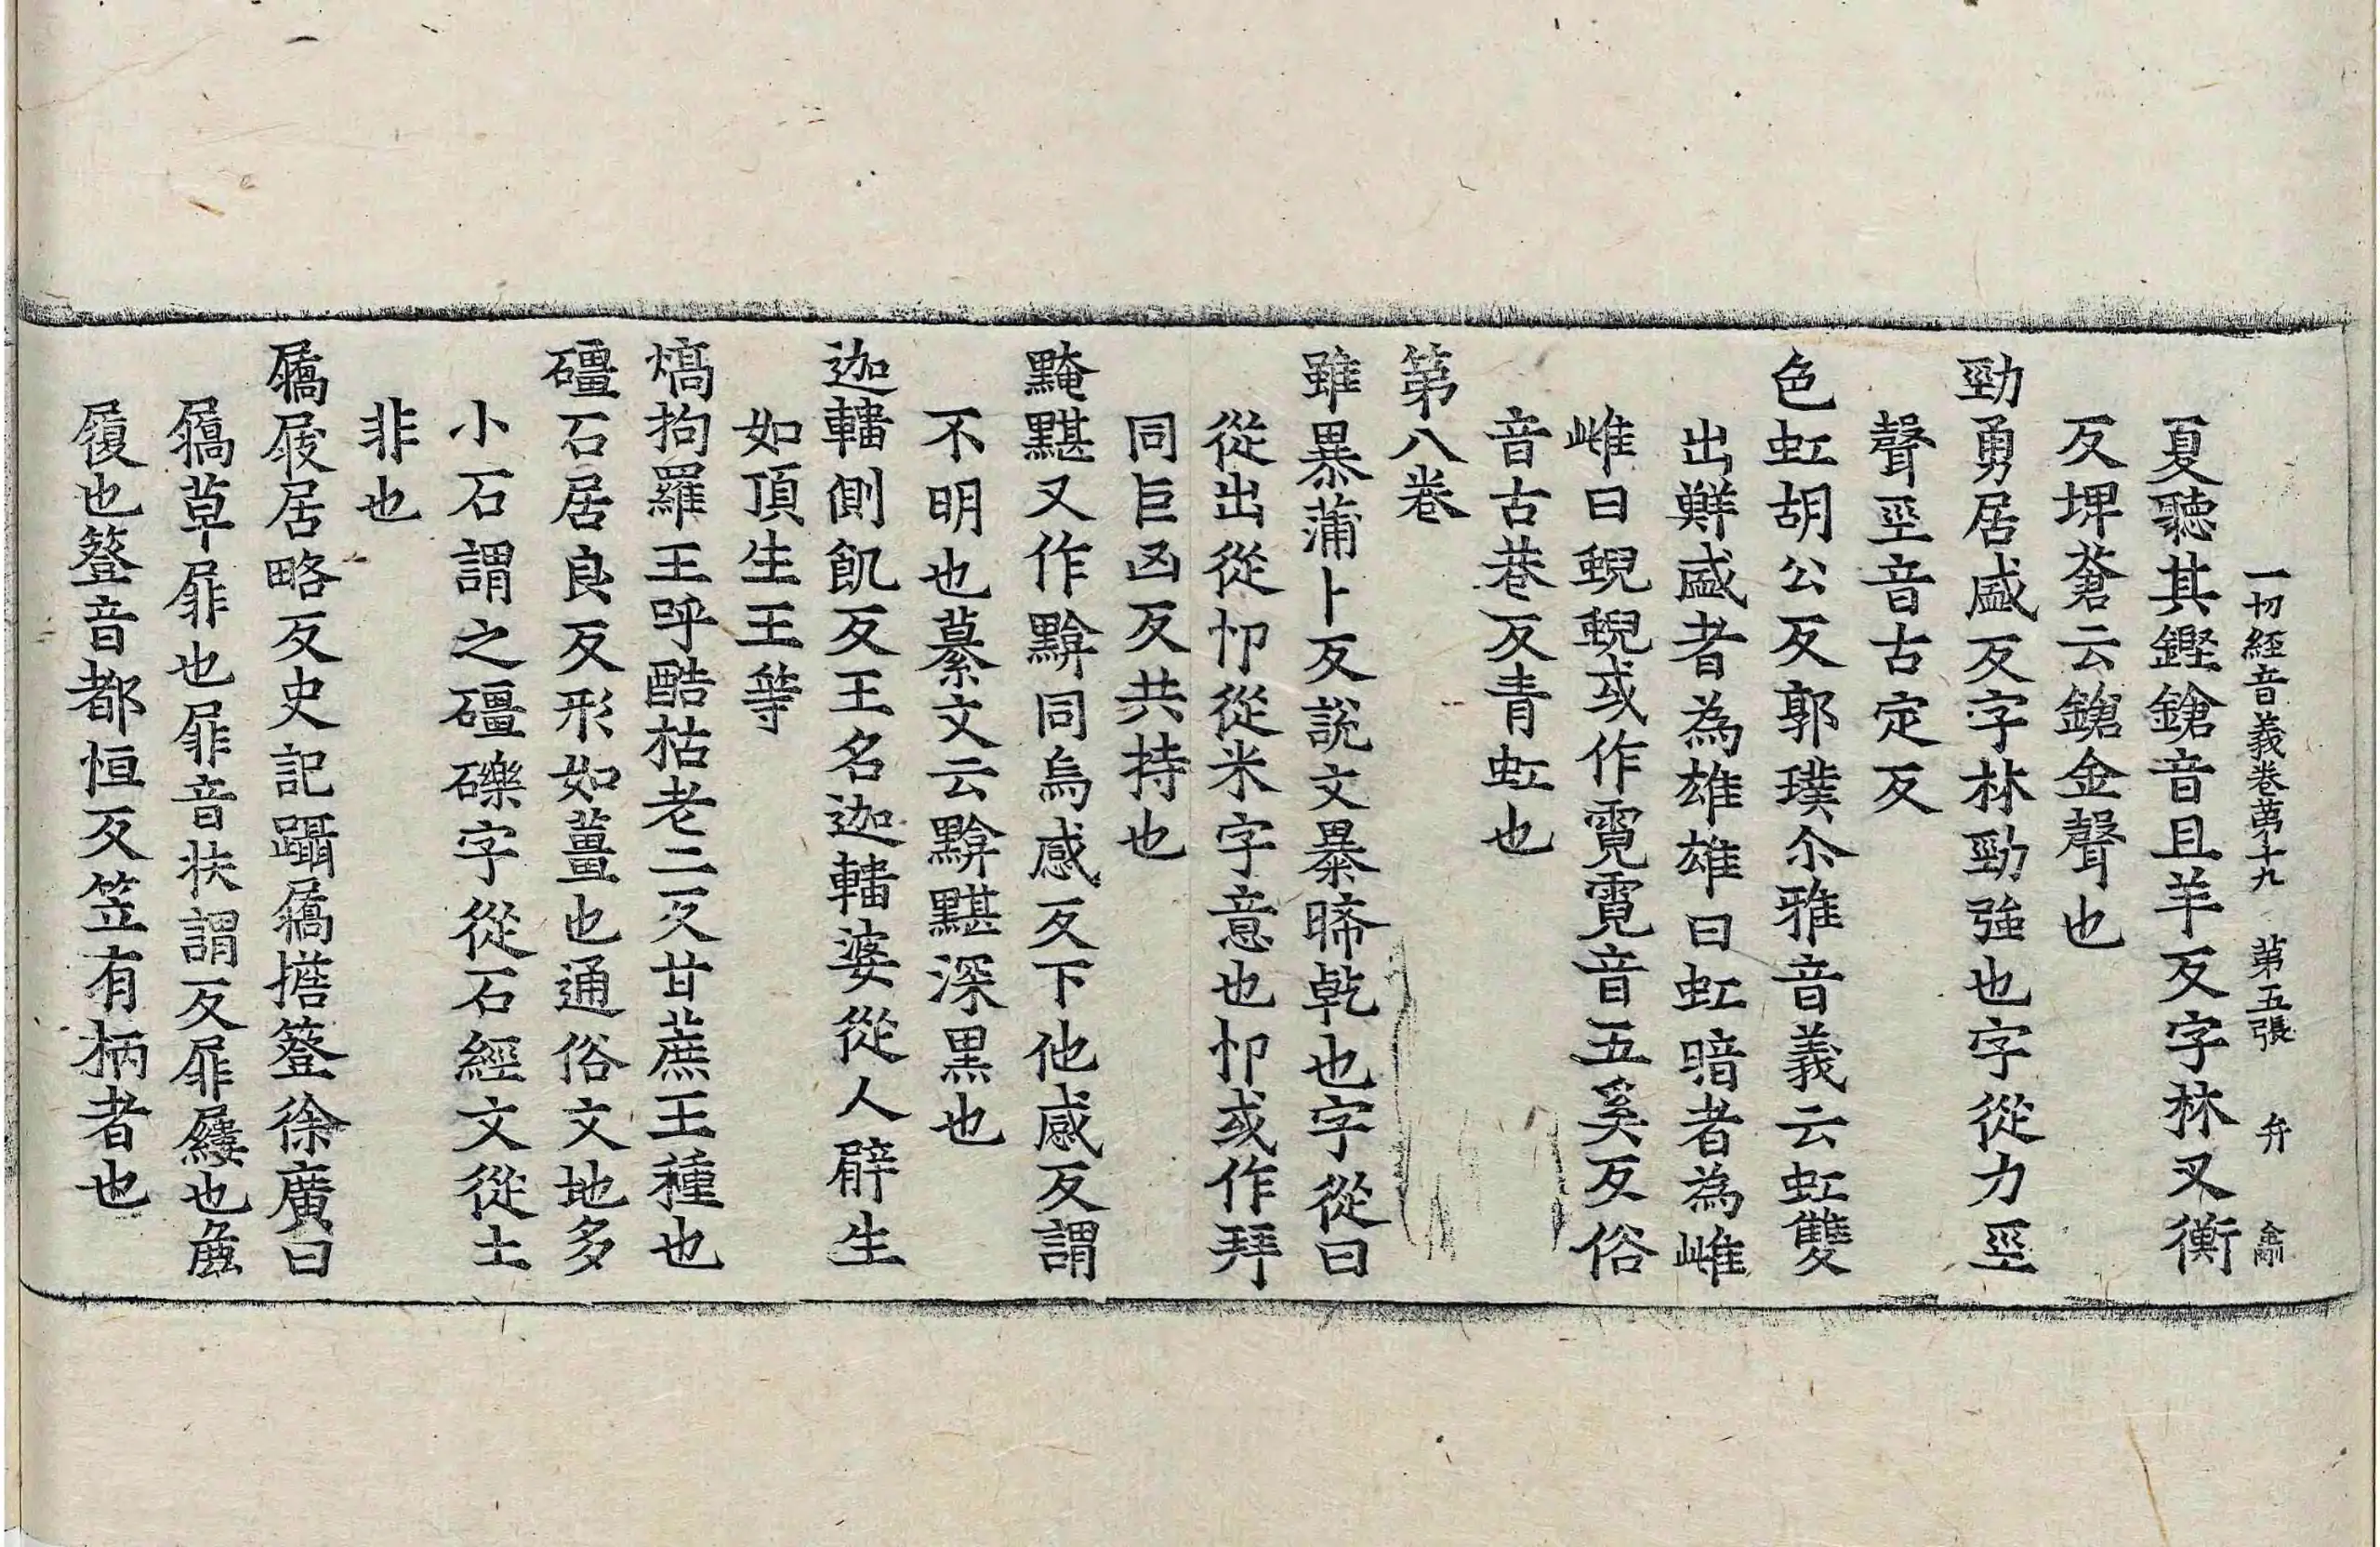 一切經音義卷第十九 第五張 弁
夏聽其鏗鎗音且羊反字林又衡
反埤蒼云鎗金聲也
勁勇居盛反字林勁強也字從力巠
聲巠音古定反
色虹胡公反郭璞尒雅音義云虹雙
出鮮盛者為雄雄曰虹暗者為雌
雌曰蜺蜺或作霓霓音五奚反俗
音古巷反青虹也
第八卷
雖暴蒲卜反說文暴晞乾也字從日
從出從𠬞從米字意也𠬞或作拜
同巨凶反共持也
黤黮又作黭同烏感反下他感反謂
不明也纂文云黭黮深黑也
迦𨍏側飢反王名迦𨍏婆從人孹生
如頂生王等
熇拘羅王呼酷枯老二反甘蔗王種也
礓石居良反形如薑也通俗文地多
小石謂之礓礫字從石經文從土
非也
屩屐居略反史記躡屩擔簦徐廣曰
屩草屝也屝音扶謂反屝屨也麁
履也簦音都恒反笠有柄者也